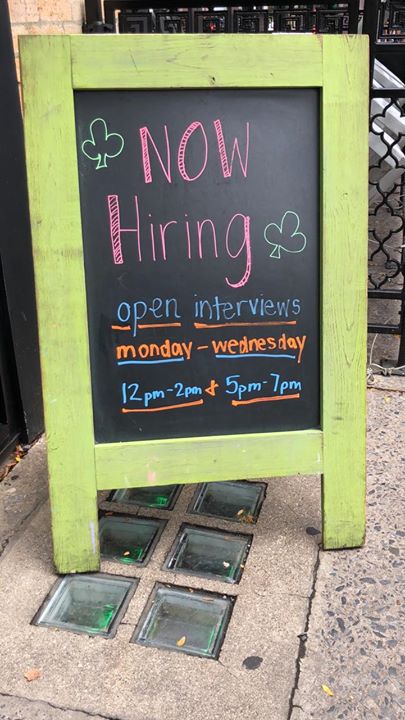 NOW
Hiring
open interviews
monday - wednesday
12pm-2pm & 5pm-7pm